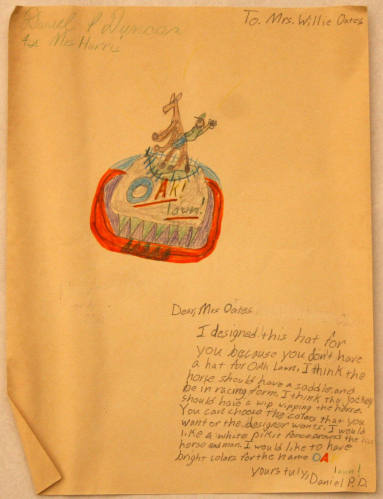 Daniel P Duncan
for Mrs Harris
To. Mrs. Willie Oates
OAK!
lawn!
Dear, Mrs Oates
I designed this hat for
you because you don't have
a hat for OAk Lawn. I think the
horse should have a saddle and
be in racing form. I think the jockey
should have a wip wipping the horse.
You can choose the colors that you
want or the designer wants. I would
like a white pikit fence around the
horse and man. I would like to have
bright colors for the name OA
lawn!
yours tuly,
Daniel P. D.